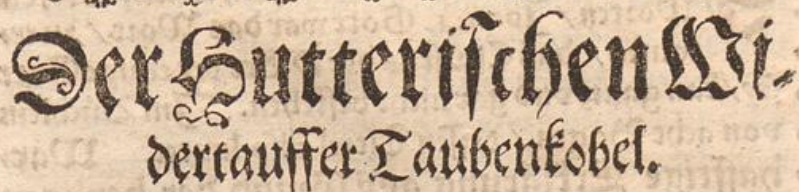 Der Hutterischen Wi-
dertauffer Taubenkobel.